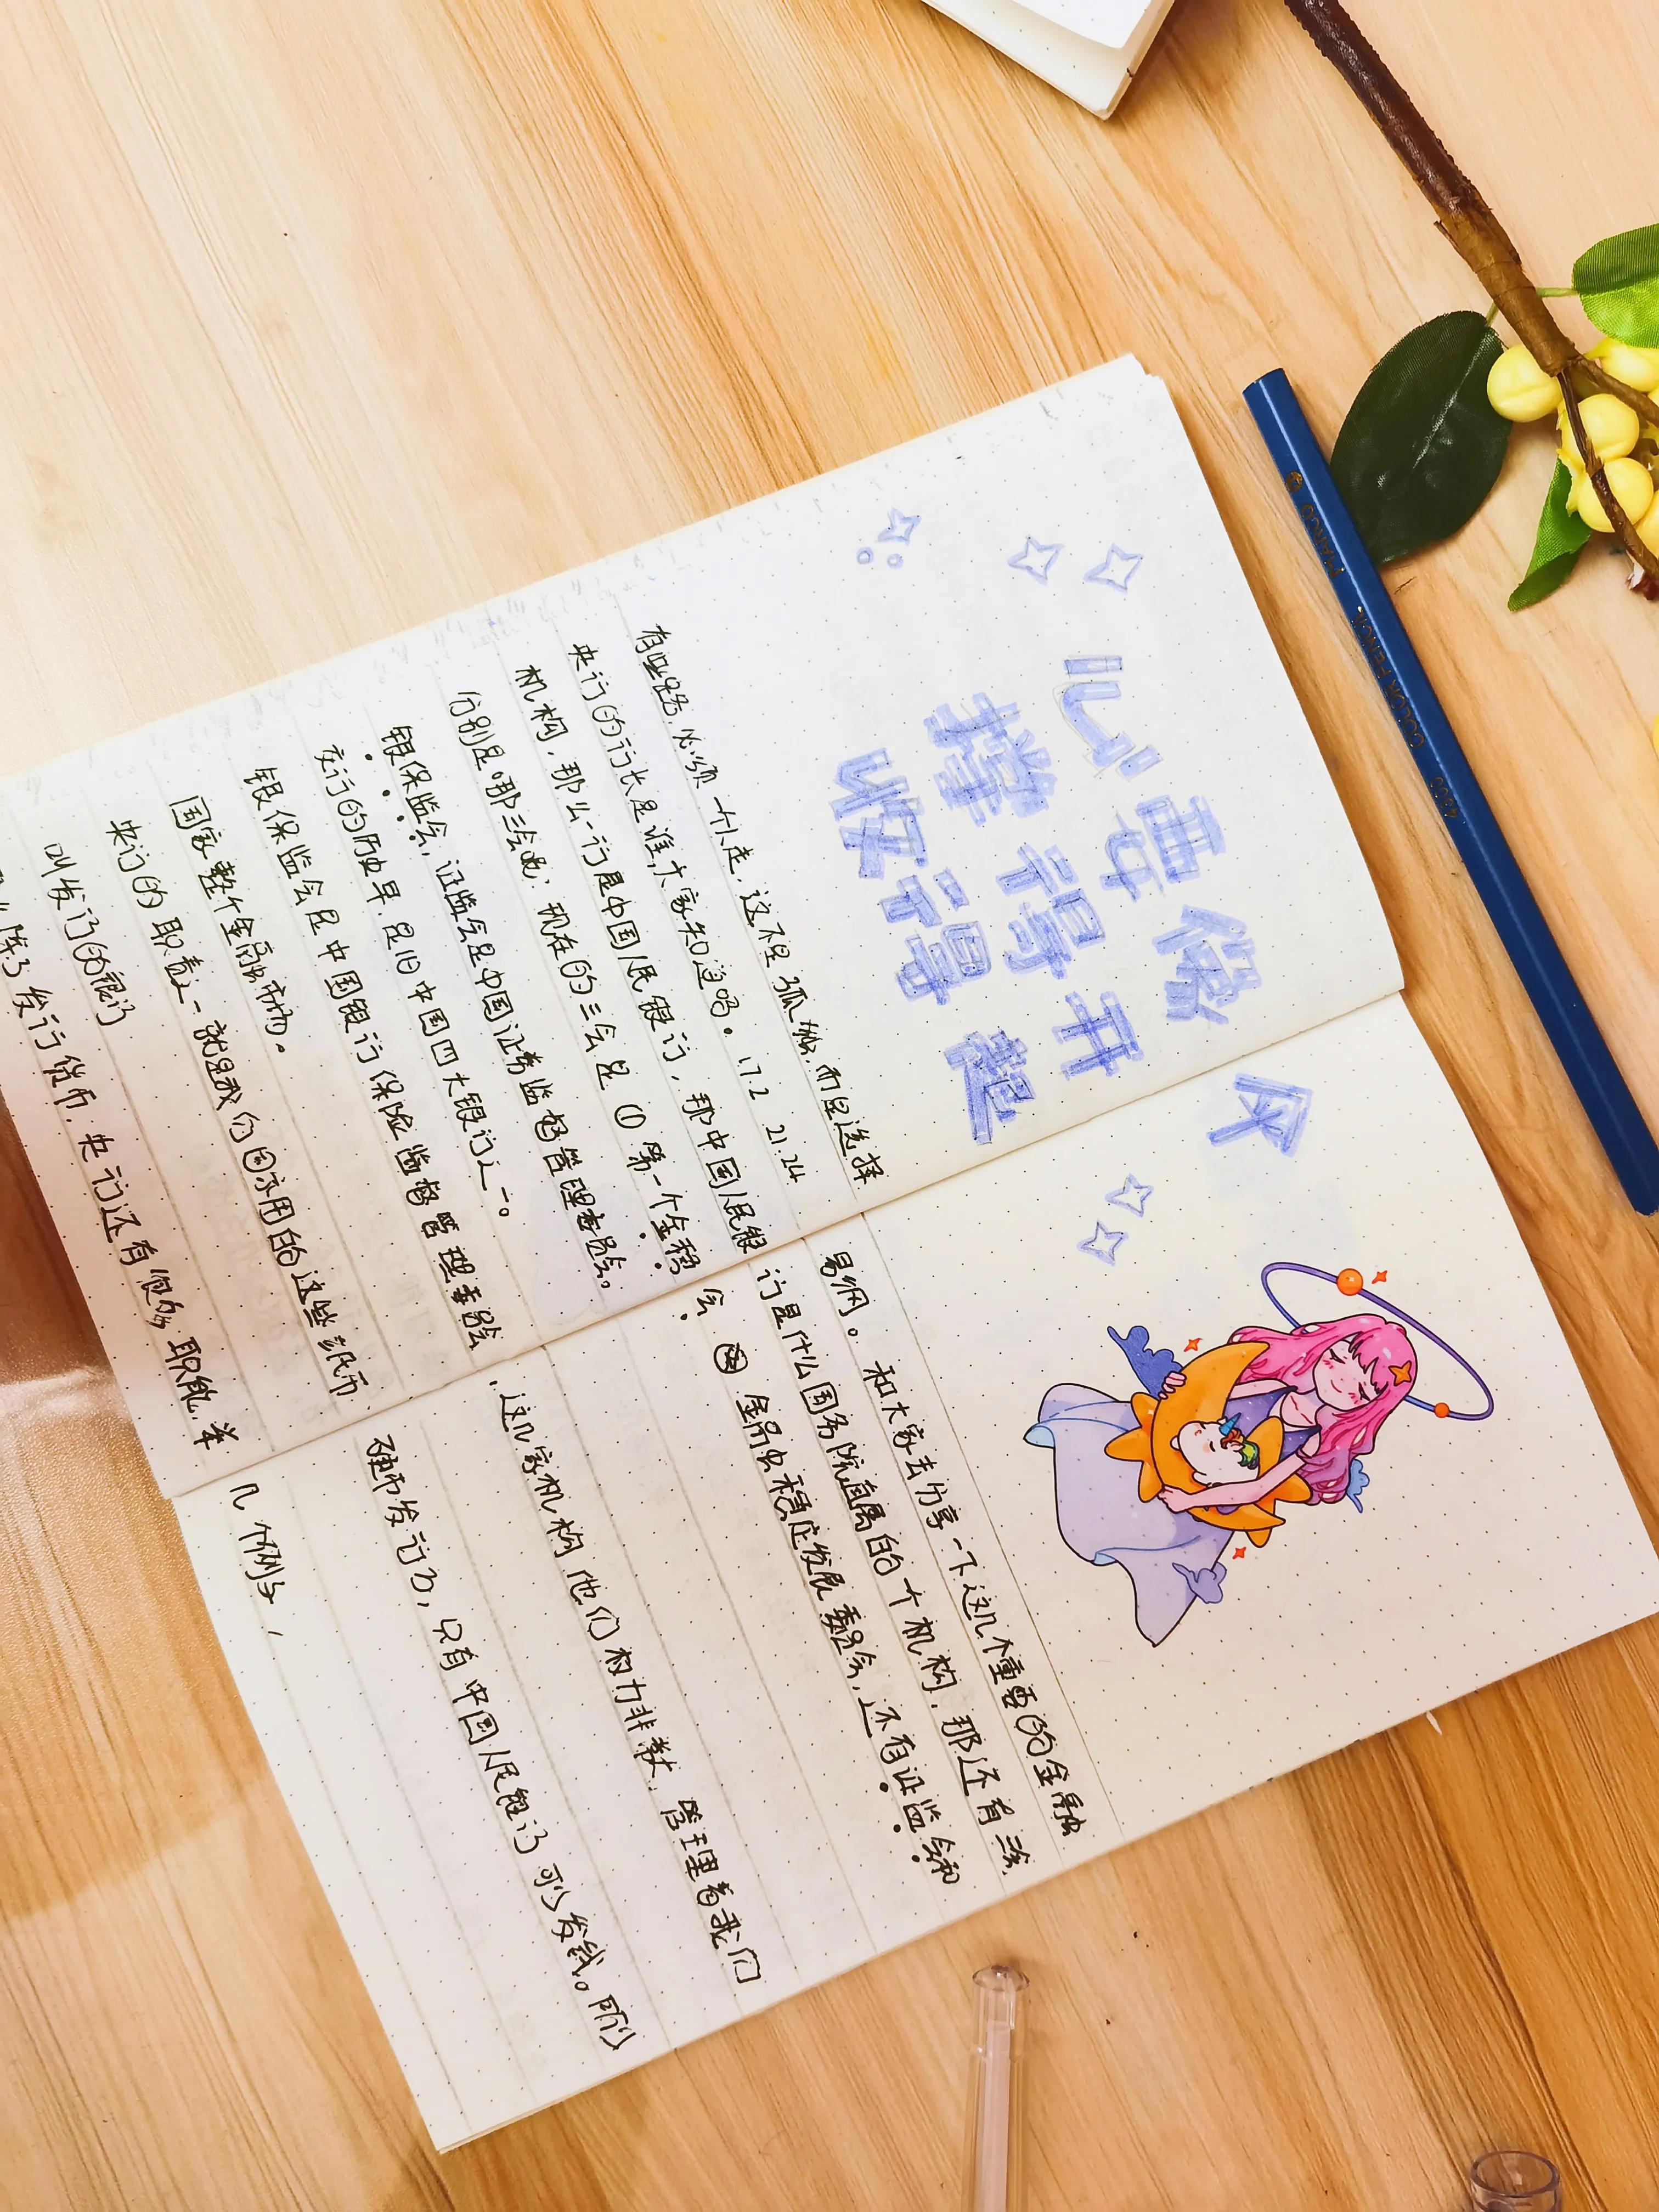 心要像伞
撑得开
收得起
有些路,必须一个人走,这不是孤独,而是选择
央行的行长是谁,大家知道吗。 1.72 21.24 易纲。 和大家去分享一下这几个重要的金融
机构,那么一行是中国人民银行,那中国人民银行是什么国务院直属的一个机构,那还有三会
分别是哪三会呢:现在的三会是①第一个金稳会 金融稳定发展委员会,还有证监会和
银保监会,证监会是中国证券监督管理委员会。
交行的历史早,是旧中国四大银行之一。
银保监会是中国银行保险监督管理委员会 这几家机构他们权力非常大,管理着我们
国家整个金融市场。
央行的职责之一就是我们日常用的这些纸币 硬币发行了,只有中国人民银行可以发钱。所以
叫发行的银行
除了发行货币,央行还有很多职能,举几个例子,
MARCO COLOR PENCIL